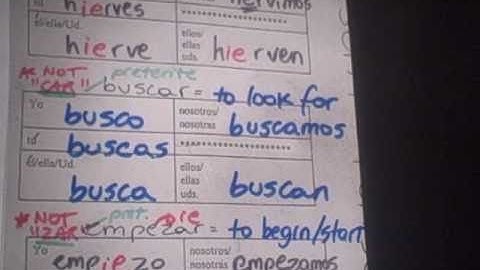 hierves hervimos
él/ella/Ud. ellos/
hierve ellas hierven
uds.
* NOT preterite
"CAR" buscar = to look for
Yo nosotros/
busco nosotras buscamos
buscas
él/ella/Ud. ellos/
busca ellas buscan
uds.
* NOT pret. ie
"ZAR" empezar = to begin/start
Yo nosotros/
empiezo nosotras empezamos